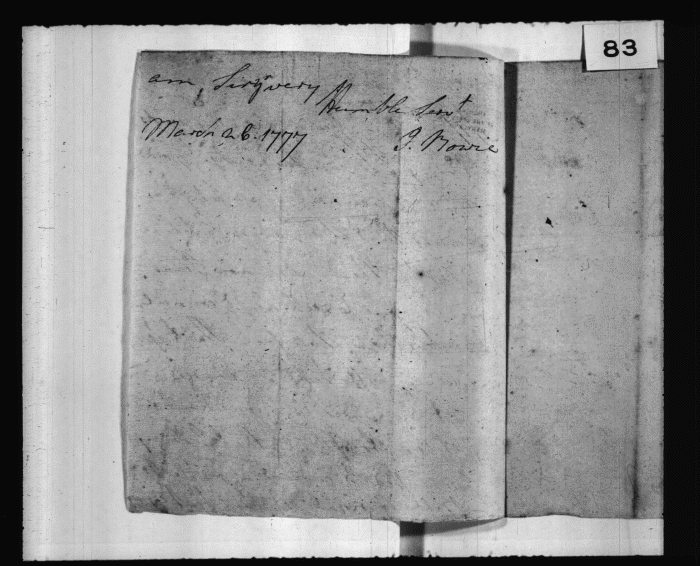 83
am, Sir, yr very
Humble Servt
March 26. 1777 J. Bowie